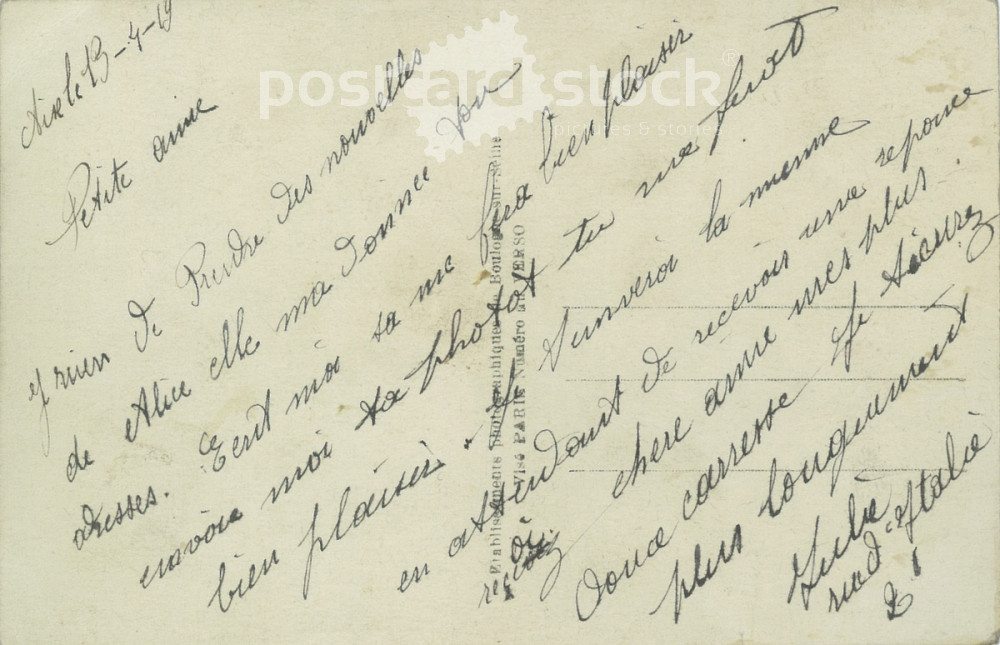 Nice le 13-4-19
Petite amie
Je vien de Prendre des nouvelles
de Alice elle ma donnee ton
adresses. Ecrit moi sa me fera bien plaisir
envoie moi ta photot tu me ferat
bien plaisir. Je t'enverai la mienne
en attendant de recevoir une reponce
reçois chere amie mes plus
douce carresse Je
plus longuement
Julie
rue d'Italie
2
Etablissements photographiques de Boulogne-sur-Seine
Visé PARIS Numéro au VERSO
postcard stock
pictures & stories